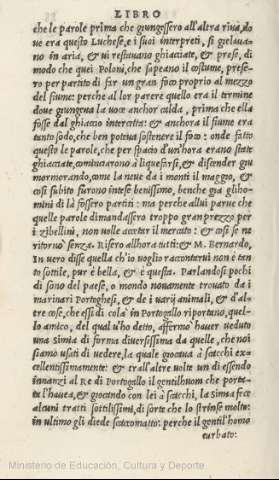 LIBRO
che le parole prima che giungessero all'altra riua, do
ue era questo Luchese, e i suoi interpreti, si gielaua-
no in aria, & ui restauano ghiacciate, & prese, di
modo che quei Poloni, che sapeano il costume, prese-
ro per partito di far un gran foco proprio al mezzo
del fiume perche al lor parere quello era il termine
doue giungeua la uoce anchor calda, prima che ella
fosse dal ghiaccio intercetta: & anchora il fiume era
tanto sodo, che ben poteua sostenere il foco: onde fatto
questo le parole, che per spacio d'un'hora erano state
ghiacciate, cominciarono à liquefarsi, & discender giu
mormorando, come la neue da i monti il maggio, &
così subito furono intese benissimo, benche gia gliho-
mini di là fossero partiti: ma perche allui parue che
quelle parole dimandassero troppo gran prezzo per
i zibellini, non uolle accettar il mercato: & così se ne
ritornò senza. Risero allhora tutti: & M. Bernardo,
In uero disse quella ch'io uoglio raccontarui non è tan
to sottile, pur è bella, & è questa. Parlandosi pochi
dì sono del paese, o mondo nouamente trouato da i
marinari Portoghesi, & de i uarij animali, & d'al-
tre cose, che essi di colà in Portogallo riportano, quel-
lo amico, del qual u'ho detto, affermò hauer ueduto
una simia di forma diuersissima da quelle, che noi
siamo usati di uedere, la quale giocaua à scacchi ex-
cellentissimamente: & trall'altre uolte un dì essendo
innanzi al Re di Portogallo il gentilhuom che porta-
ta l'hauea, & giocando con lei à scacchi, la simia fece
alcuni tratti sottilissimi, di sorte che lo strinse molto:
in ultimo gli diede scaccomatto: perche il gentil'homo
turbato:
Ministerio de Educación, Cultura y Deporte